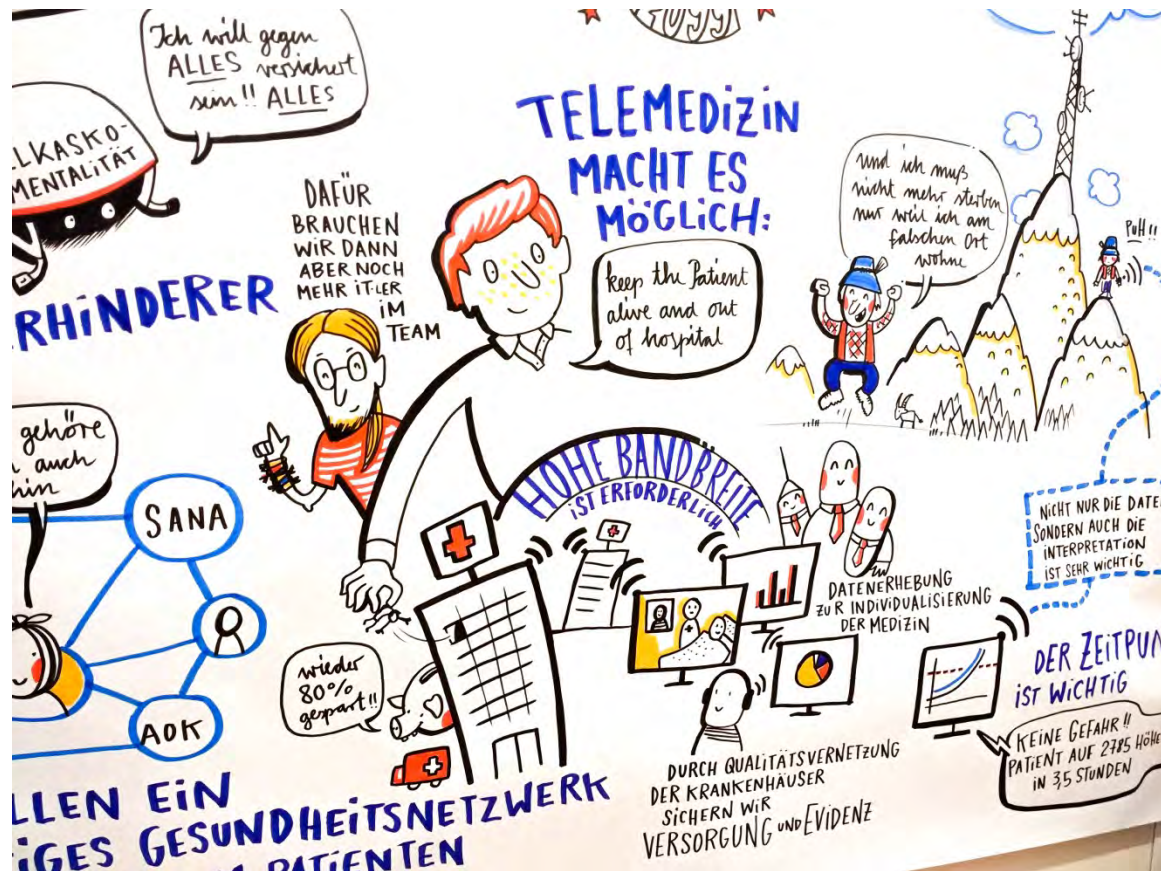 Ich will gegen
ALLES versichert
sein!! ALLES
LKASKO-
MENTALITÄT
RHINDERER
DAFÜR
BRAUCHEN
WIR DANN
ABER NOCH
MEHR iT-LER
IM
TEAM
TELEMEDIZIN
MACHT ES
MÖGLICH:
keep the Patient
alive and out
of hospital
und ich muß
nicht mehr sterben
nur weil ich am
falschen Ort
wohne
PUH!!
gehöre
auch
hin
SANA
AOK
HOHE BANDBREITE
IST ERFORDERLICH
DATENERHEBUNG
ZUR INDIVIDUALISIERUNG
DER MEDIZIN
NICHT NUR DIE DATE
SONDERN AUCH DIE
INTERPRETATION
IST SEHR WICHTIG
DER ZEITPUN
IST WICHTIG
KEINE GEFAHR!!
PATIENT AUF 2785 HÖHE
IN 3,5 STUNDEN
wieder
80%
gespart!!
DURCH QUALITÄTSVERNETZUNG
DER KRANKENHÄUSER
SICHERN WIR
VERSORGUNG UND EVIDENZ
LLEN EIN
IGES GESUNDHEITSNETZWERK
PATIENTEN